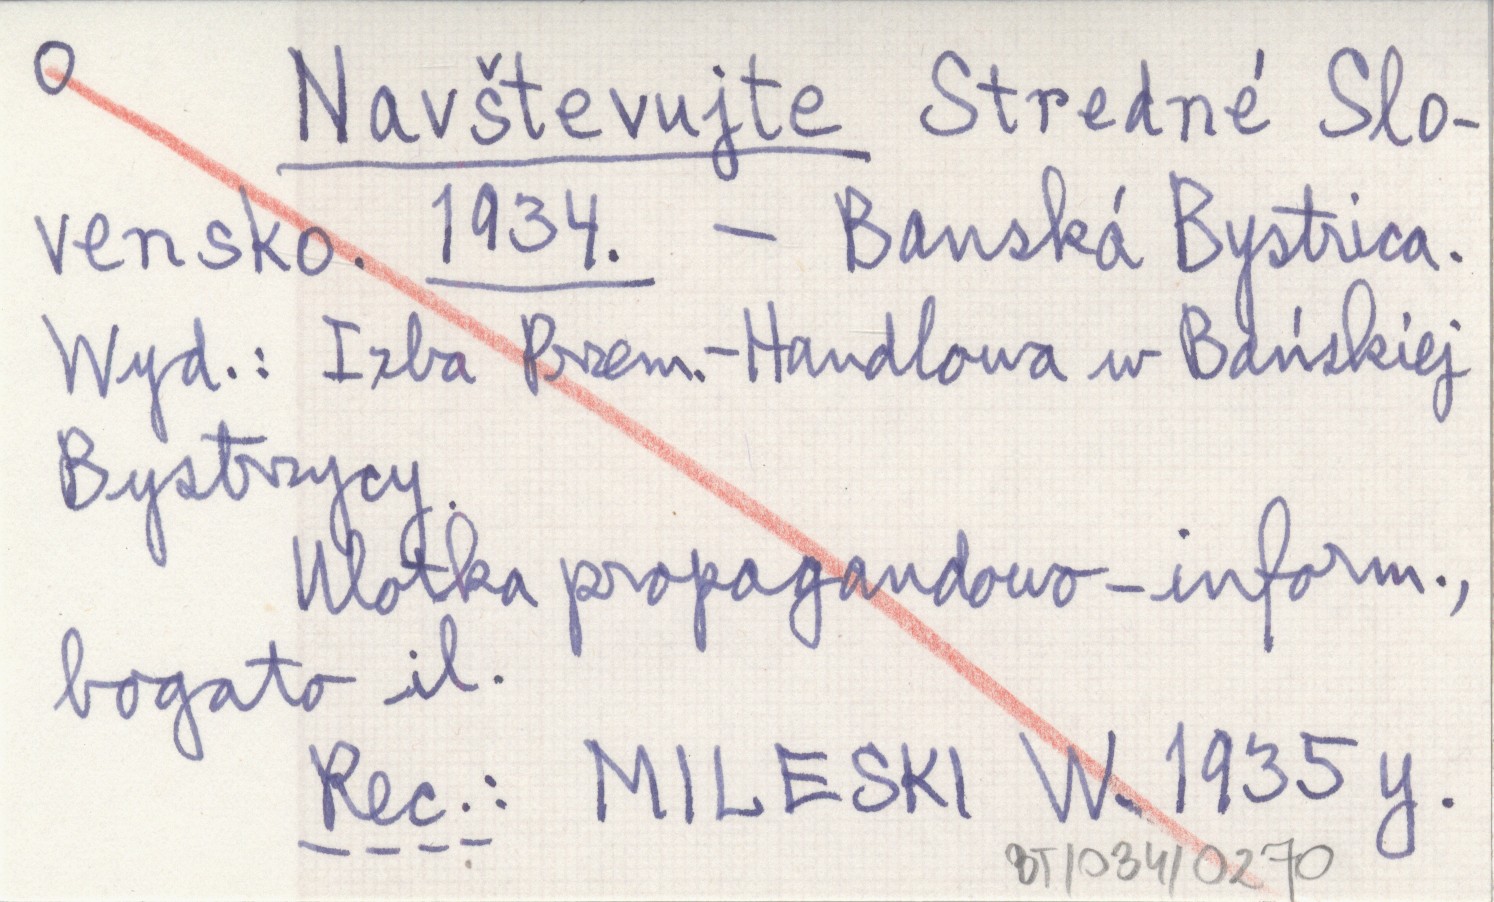 O Navštevujte Stredné Slo-
vensko. 1934. - Banská Bystrica.
Wyd.: Izba Przem.-Handlowa w Bańskiej
Bystrzycy.
Ulotka propagandowo-inform.,
bogato il.
Rec.: MILESKI W. 1935 y.
BT/034/0270